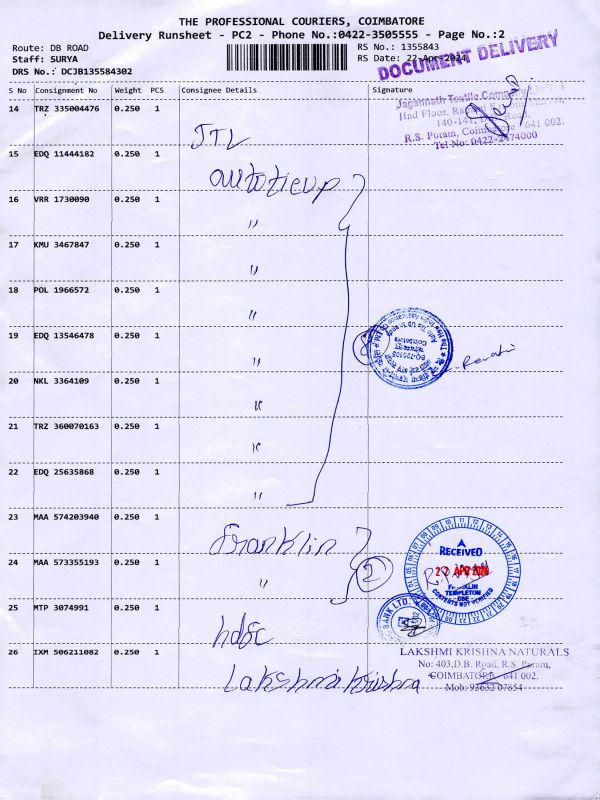 THE PROFESSIONAL COURIERS, COIMBATORE
Delivery Runsheet - PC2 - Phone No.:0422-3505555 - Page No.:2
Route: DB ROAD
Staff: SURYA
DRS No.: DCJB135584302
RS No.: 1355843
RS Date: 22-Apr-2024
DOCUMENT DELIVERY
S No Consignment No Weight PCS Consignee Details Signature
14 TRZ 335004476 0.250 1 JTL
Jagannath Textile Company Limited
IInd Floor,
140-141,
R.S. Puram, Coimbatore 641 002.
Tel No: 0422-2474000
15 EDQ 11444182 0.250 1 autotieup
16 VRR 1730090 0.250 1 "
17 KMU 3467847 0.250 1 "
18 POL 1966572 0.250 1 "
19 EDQ 13546478 0.250 1 "
Coimbatore
20 NKL 3364109 0.250 1 "
21 TRZ 360070163 0.250 1 "
22 EDQ 25635868 0.250 1 "
23 MAA 574203940 0.250 1 Franklin
24 MAA 573355193 0.250 1 "
2
RECEIVED
22 APR
FRANKLIN
TEMPLETON
CBE
CONTENTS NOT VERIFIED
25 MTP 3074991 0.250 1 hdfc
BANK LTD.
26 IXM 506211082 0.250 1 Lakshmi Krishna
LAKSHMI KRISHNA NATURALS
No: 403,D.B. Road, R.S. Puram,
COIMBATORE - 641 002.
Mob: 93632 07854